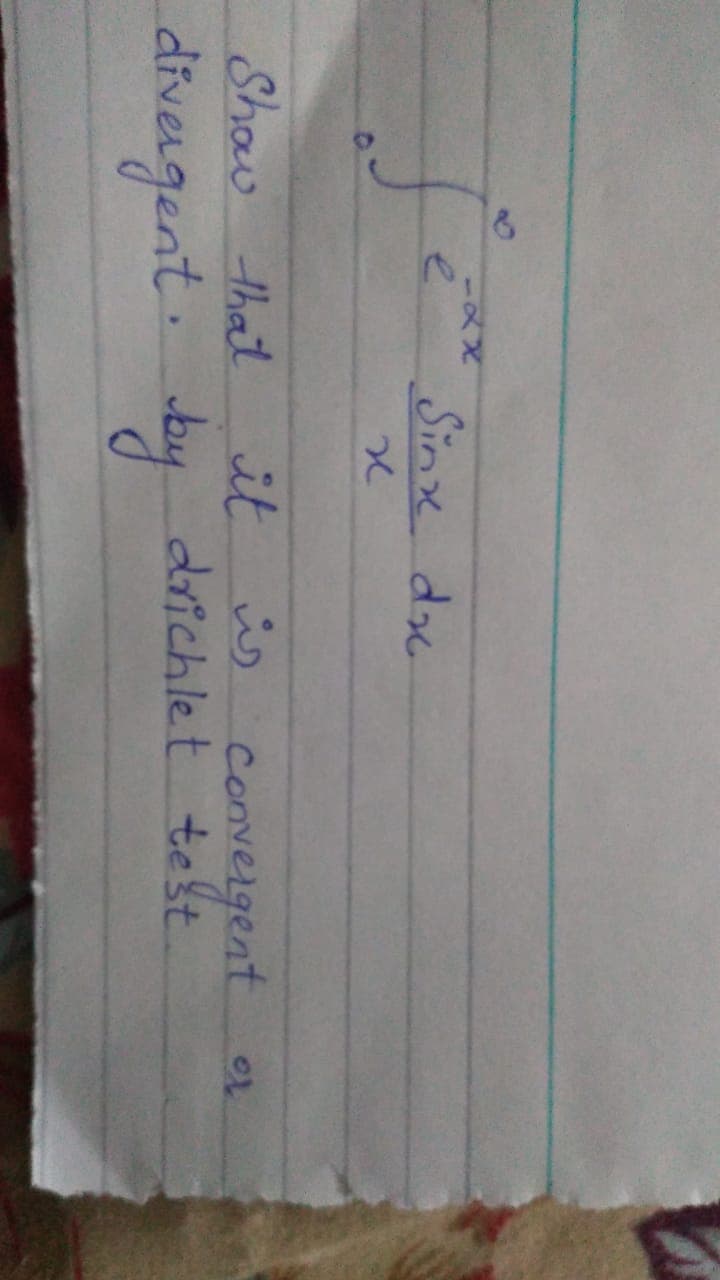 ∫₀^∞ e^{-αx} Sinx/x dx
Show that it is convergent or
divergent. by drichlet test